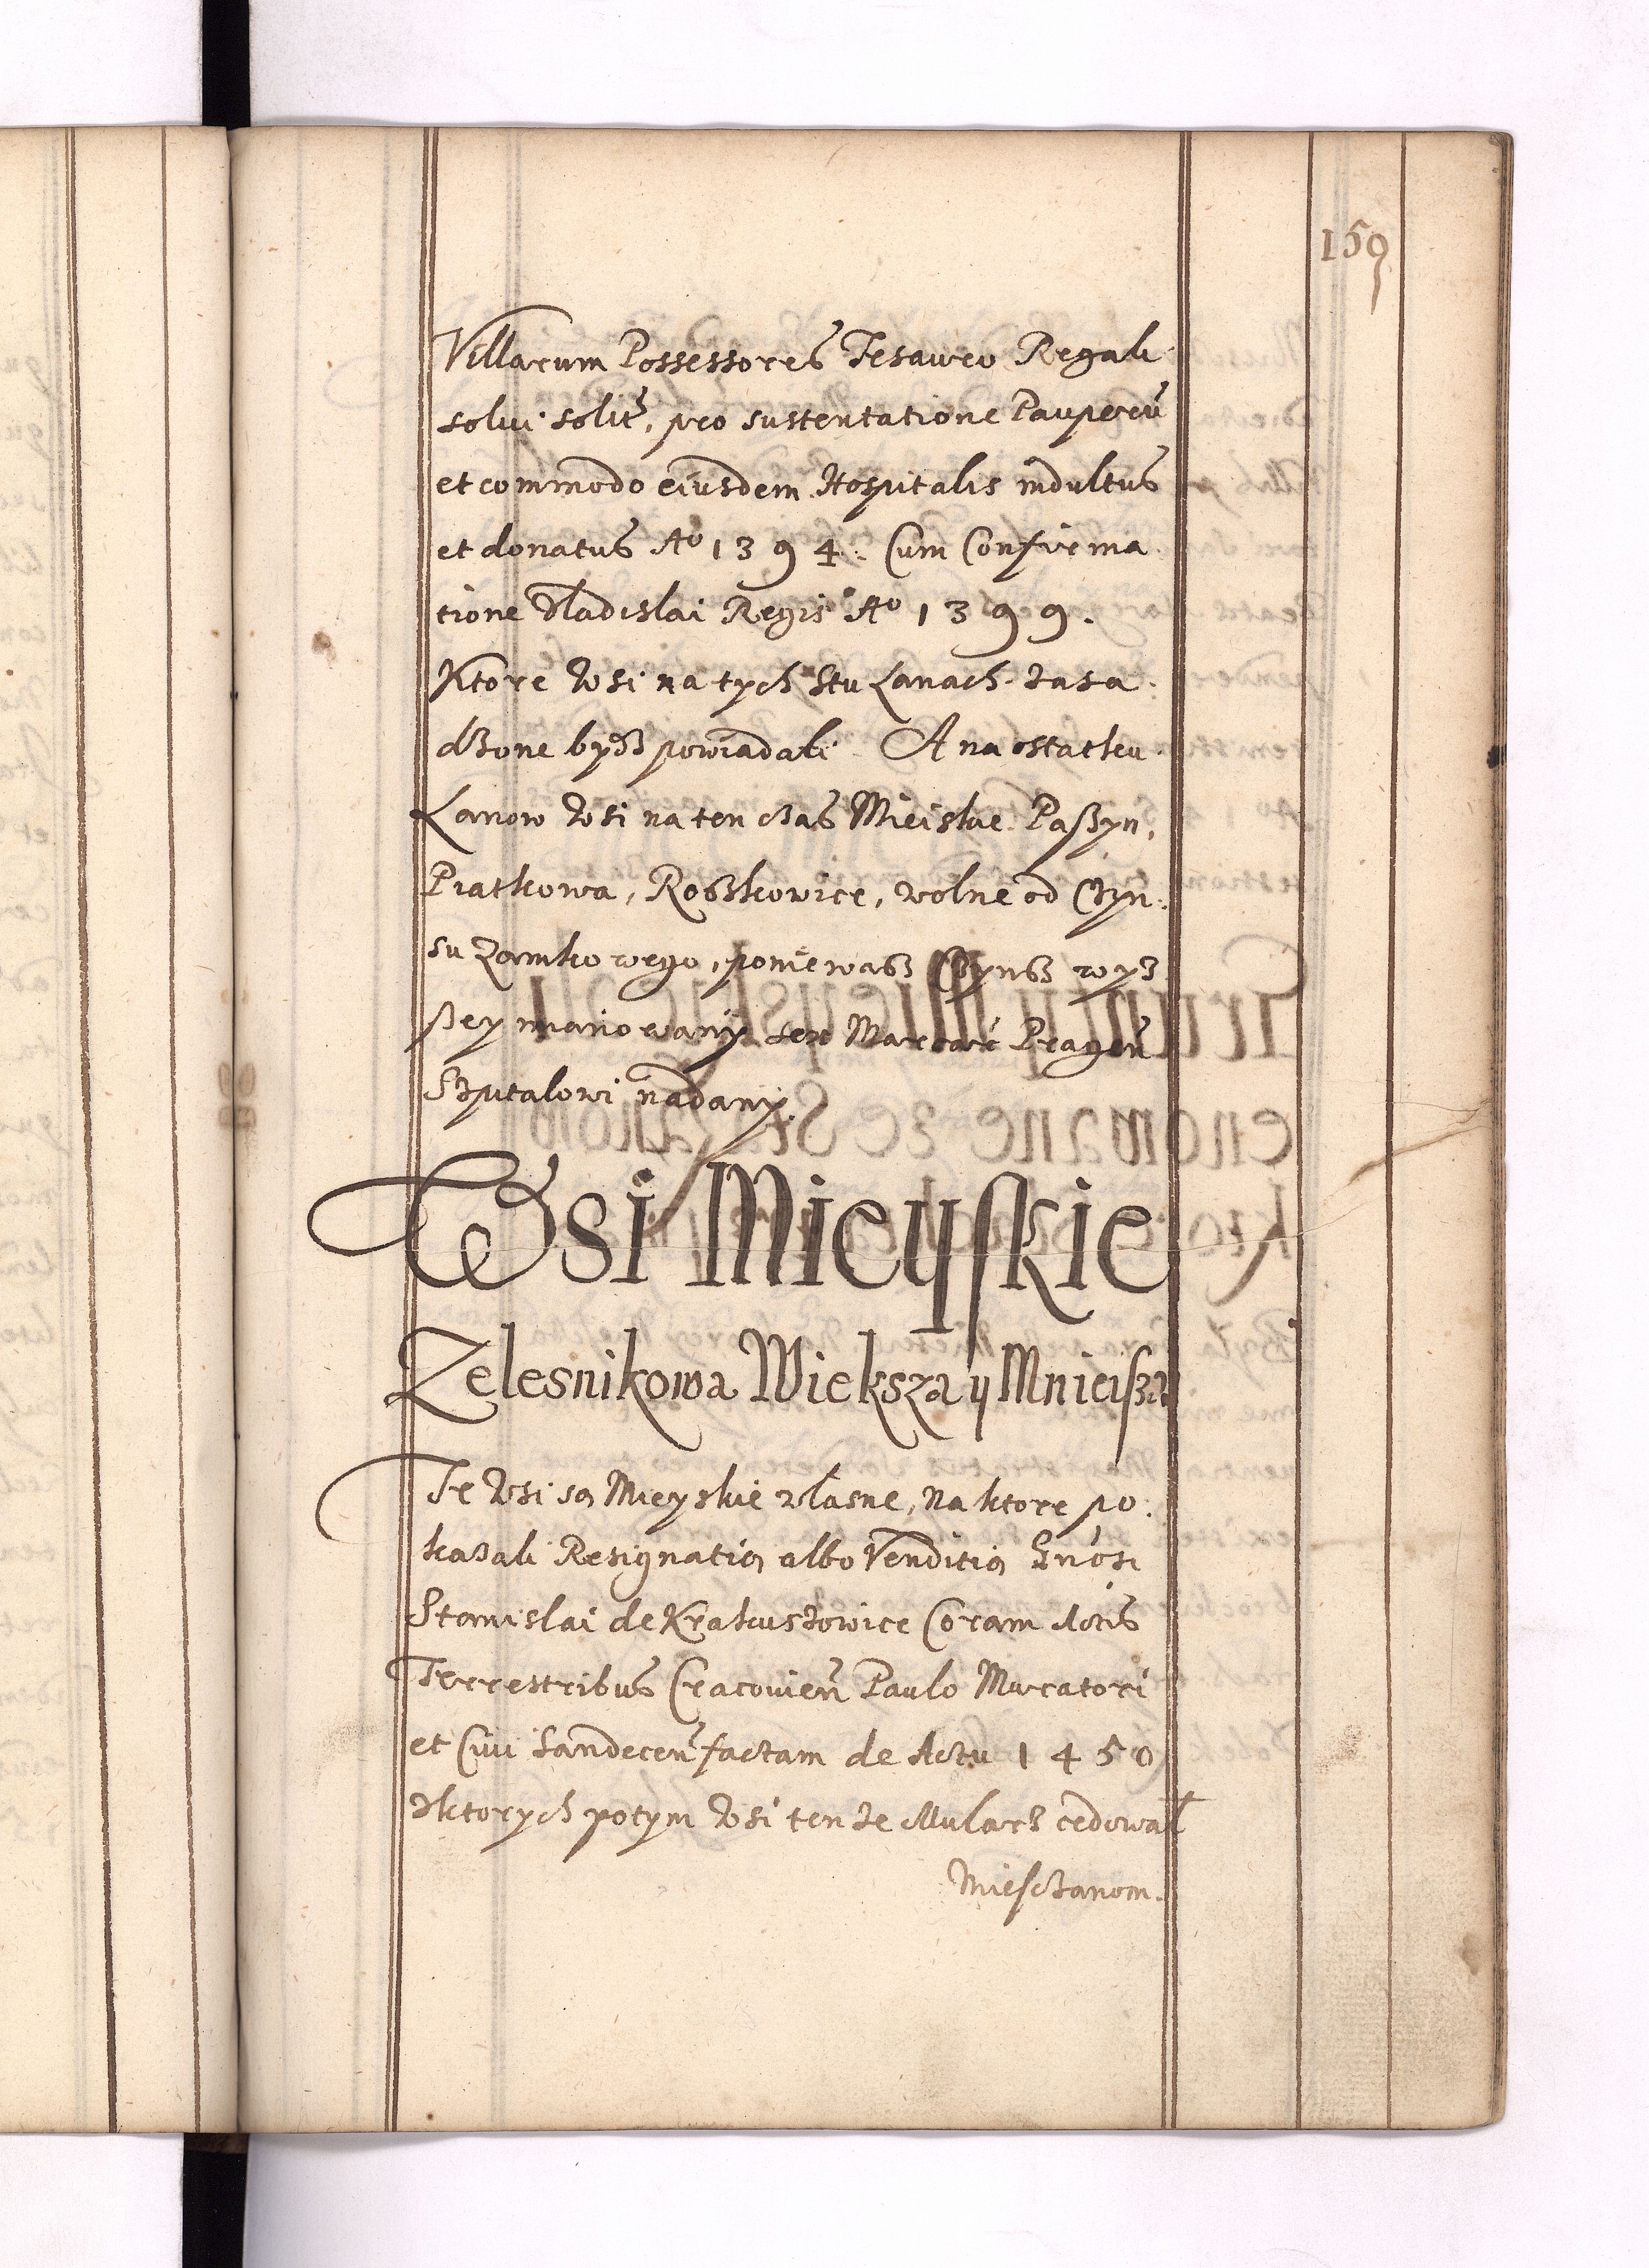 159
Villarum Possessores Tesauro Regali
solui solit, pro sustentatione Pauperū
et commodo eiusdem Hospitalis indultus
et donatus Aº 1394. Cum Confirma
tione Vladislai Regis Aº 1399.
Ktore Wsi na tych Stu Łanach zasa
dzone bydz powiadali. A na ostatku
Łanow Wsi na ten czas Mieiskie Paszyn,
Piatkowa, Roszkowice, wolne od Czyn
su Zamkowego, poniewasz Czynsz wys
szey mianowany Marcar Pragen
Szpitalowi nadany.
Wsi Mieyskie
Zelesnikowa Wieksza y Mnieisza
Te Wsi są Mieyskie własne, Na ktore po
kazali Resignatią albo Venditią
Stanislai de Krakuszowice Coram Actis
Terrestribus Cracovien Paulo Muratori
et Ciui Sandecen factam de Actu 1450
Vktorych potym Wsi tenze Mularz cedował
Miesczanom.